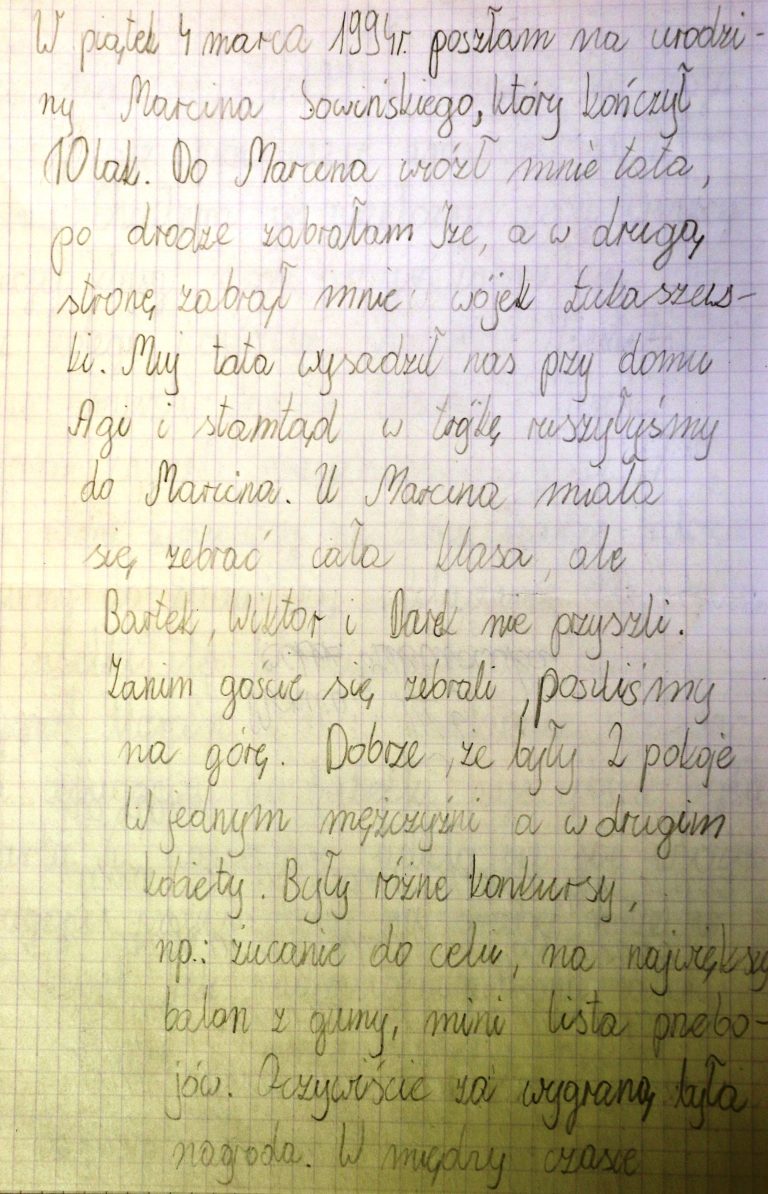 W piątek 4 marca 1994r. poszłam na urodzi-
ny Marcina Sowińskiego, który kończył
10 lak. Do Marcina wiózł mnie tata,
po drodze zabrałam Izę, a w drugą
stronę zabrął mnie wójek Łukaszews-
ki. Muj tata wysadził nas przy domu
Agi i stamtąd w trójkę ruszyłyśmy
do Marcina. U Marcina miała
się zebrać cała klasa, ale
Bartek, Wiktor i Darek nie przyszli.
Zanim goście się zebrali, posiliśmy
na górę. Dobrze, że były 2 pokoje
W jednym mężczyźni a w drugim
kobiety. Były różne konkursy,
np.: żucanie do celu, na największy
balon z gumy, mini lista przebo-
jów. Oczywiście za wygraną była
nagroda. W między czasie